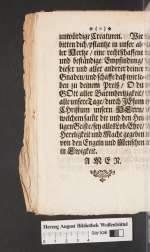 unwürdige Creaturen. Wir
bitten dich, pflantze in unser al-
ler Hertze, eine rechtschaffene
und beständige Empfindung
dieser und aller anderer deiner
Gnaden, und schaffe daß wir le-
ben zu deinem Preiß, O du
GOtt aller Barmhertzigkeit,
alle unsere Tage, durch JEsum
Christum unsern HErrn,
welchem samt dir und dem Hei-
ligen Geiste, sey alles Lob, Ehre,
Herrligkeit und Macht gegeben
von den Engeln und Menschen
in Ewigkeit.
AMEN.
Herzog August Bibliothek Wolfenbüttel